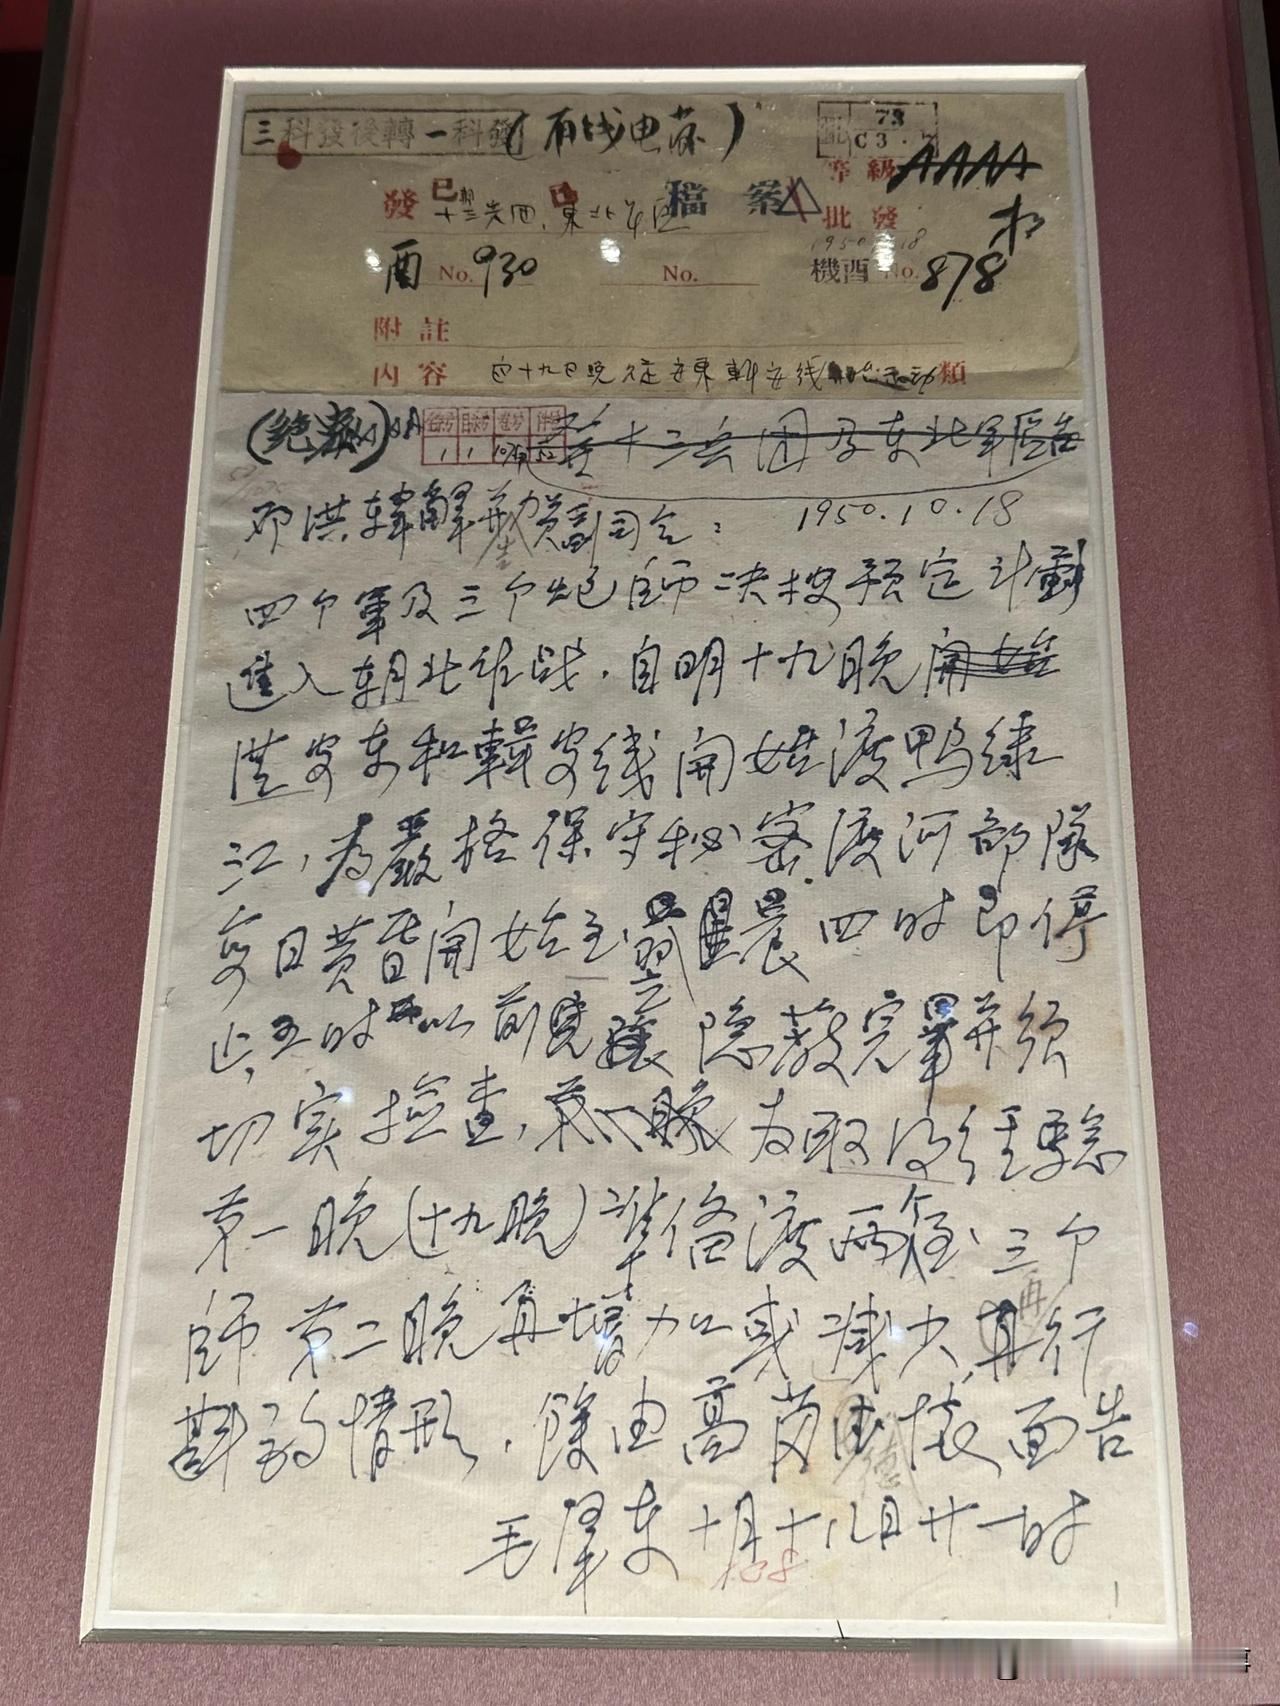 三科發後轉一科發(有线电蔴)
73
C3.
等級 AAAA
發 檔案
十三兵团、東北军区
批發
1950 18
酉 No. 930 No. 機酉 No. 878
附註
内容 自十九日晚 安東輯安线 類
(绝密)AAA
1 1 52
十三兵团及东北軍區
1950.10.18
邓洪韓解並告賀副司令:
四个軍及三个炮師决按预定计劃
進入朝北作战,自明十九晚開始
從安东和輯安线開始渡鴨绿
江,为嚴格保守秘密,渡河部隊
每日黄昏開始至翌晨四时即停
止,五时以前 隐蔽完畢并须
切实檢查,为取得经驗
第一晚(十九晚)準备渡两个至三个
師,第二晚再增加或减少,再行
斟酌情形,餘由高岗德懷面告
毛澤东 十月十八日廿一时